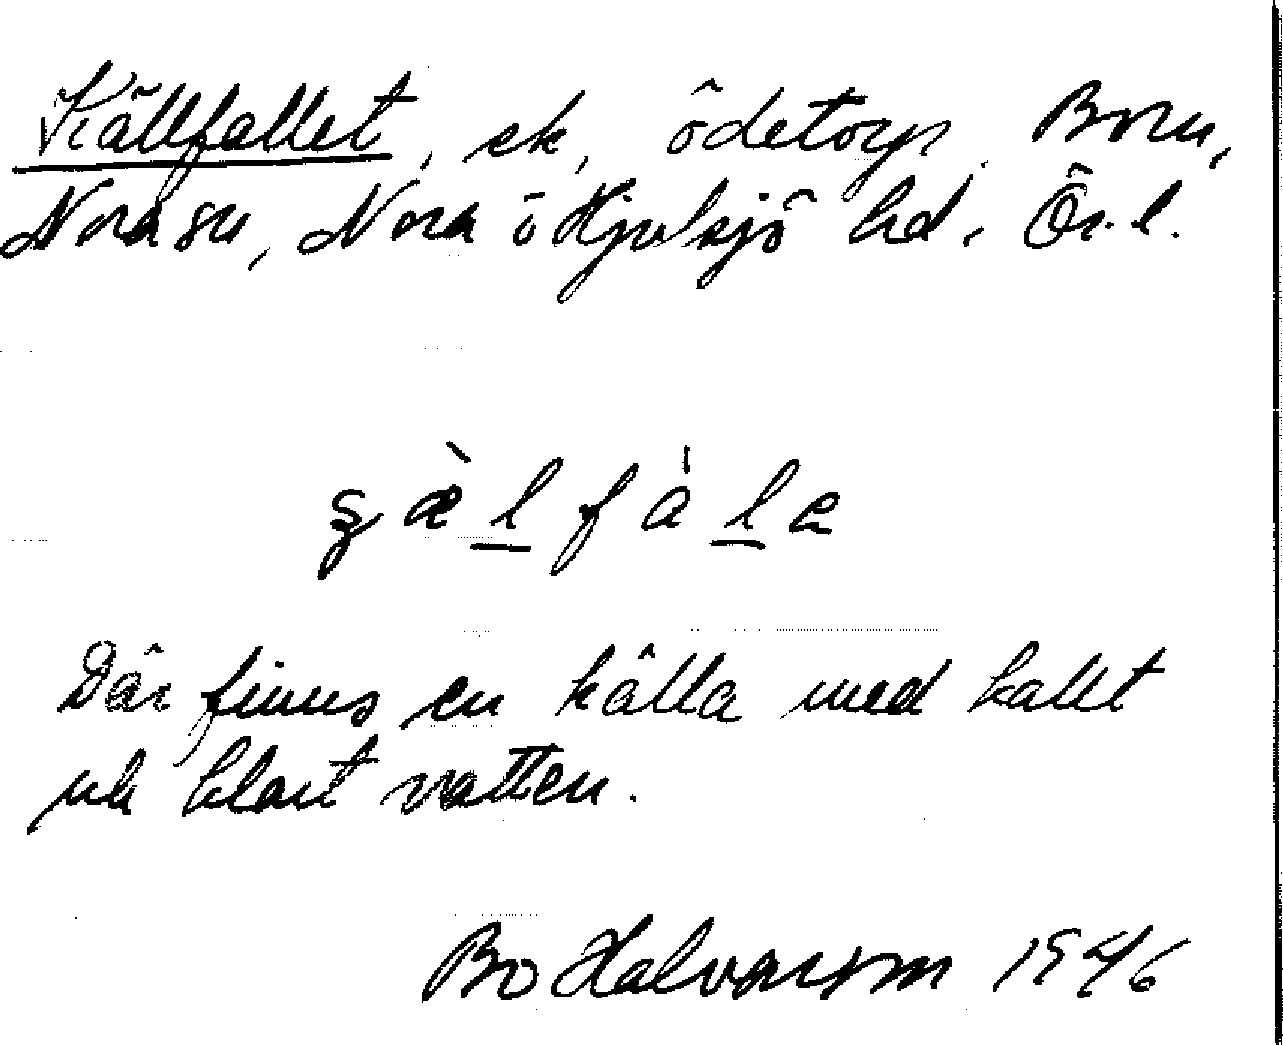 Källfallet, ek, ödetorp, Boru,
Nora sn, Nora ö Hjulsjö hd, Ör. l.
Där finns en källa med kallt
och klart vatten.
Bo Halvarson 1946